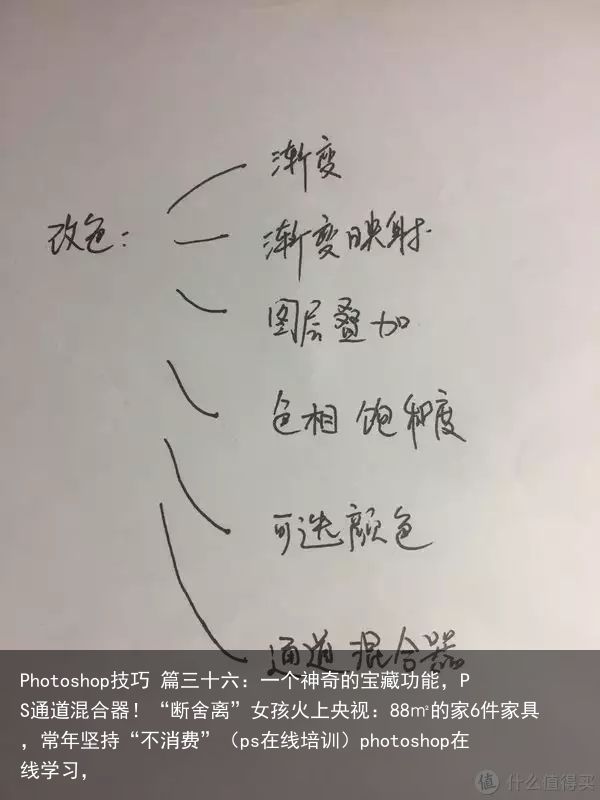 渐变
改色：
渐变映射
图层叠加
色相 饱和度
可选颜色
通道混合器
Photoshop技巧 篇三十六：一个神奇的宝藏功能，P
S通道混合器！“断舍离”女孩火上央视：88㎡的家6件家具
，常年坚持“不消费”（ps在线培训）photoshop在
线学习，
值 什么值得买